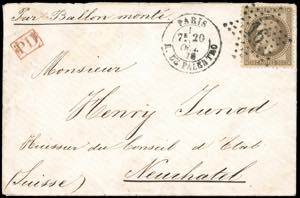 Par Ballon monté
PARIS
R. DE PALESTRO
P.D.
Monsieur
Henry Junod
Huissier du Conseil d'Etat
Neuchatel
(Suisse)